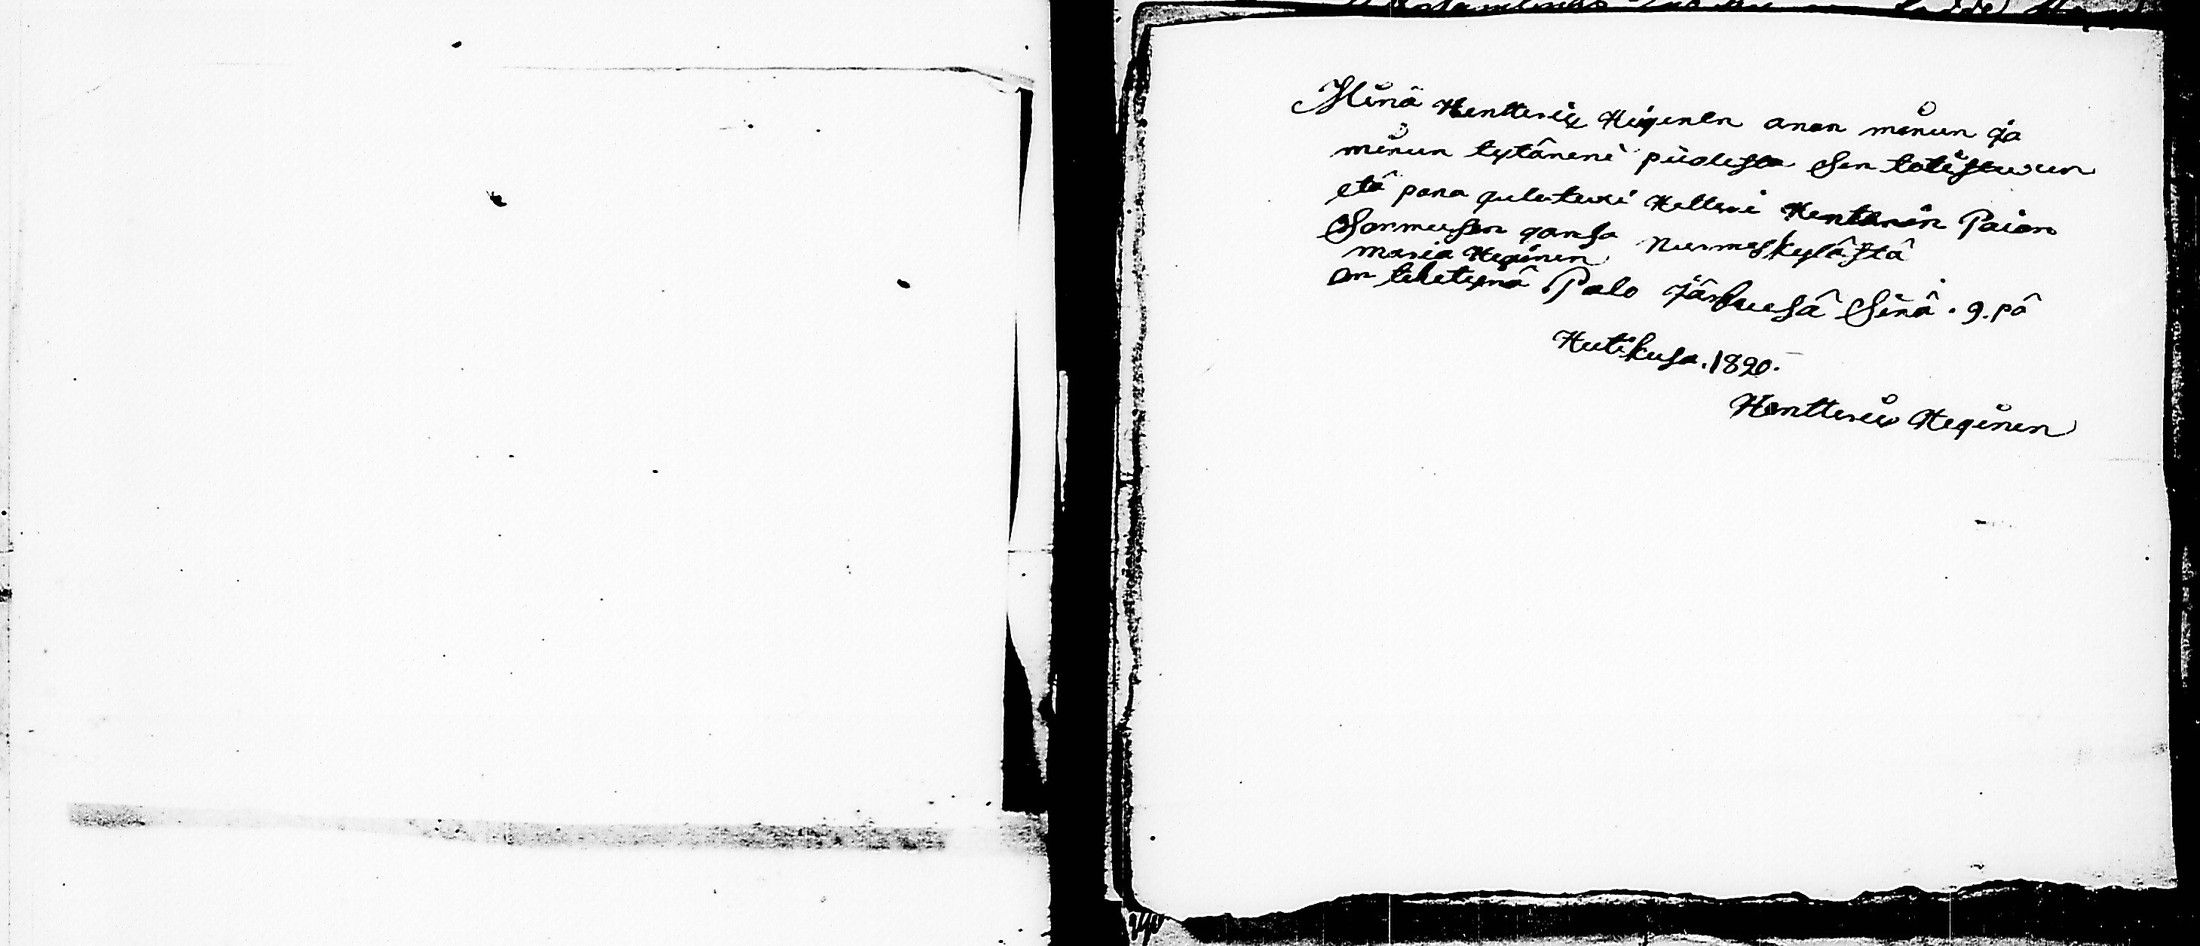 Minä Hentterix Heginen anon minun ja
minun tytäneni puolesta Sen totistuxen
etä pana quluteuxi Helteri Hentenin Paion
Sormusen qansa Nurmeskylästä
maria Heginen
on tehetynä Palo Järfuesä Sinä . 9. pä
Hutikusa. 1820.
Hentterix Heginen